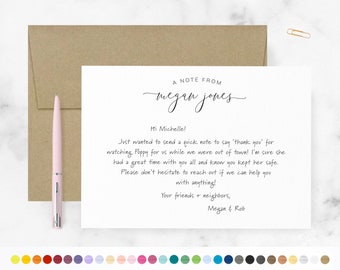 A NOTE FROM
megan jones
Hi Michelle!
Just wanted to send a quick note to say 'thank you' for
watching Poppy for us while we were out of town! I'm sure she
had a great time with you all and know you kept her safe.
Please don't hesitate to reach out if we can help you
with anything!
Your friends + neighbors,
Megan & Rob